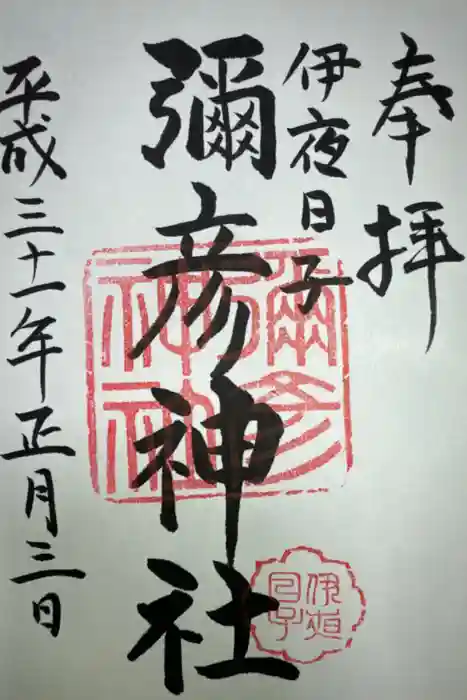 奉拝
伊夜日子
彌彦神社
平成三十一年正月三日
彌彦
神社
伊夜
日子